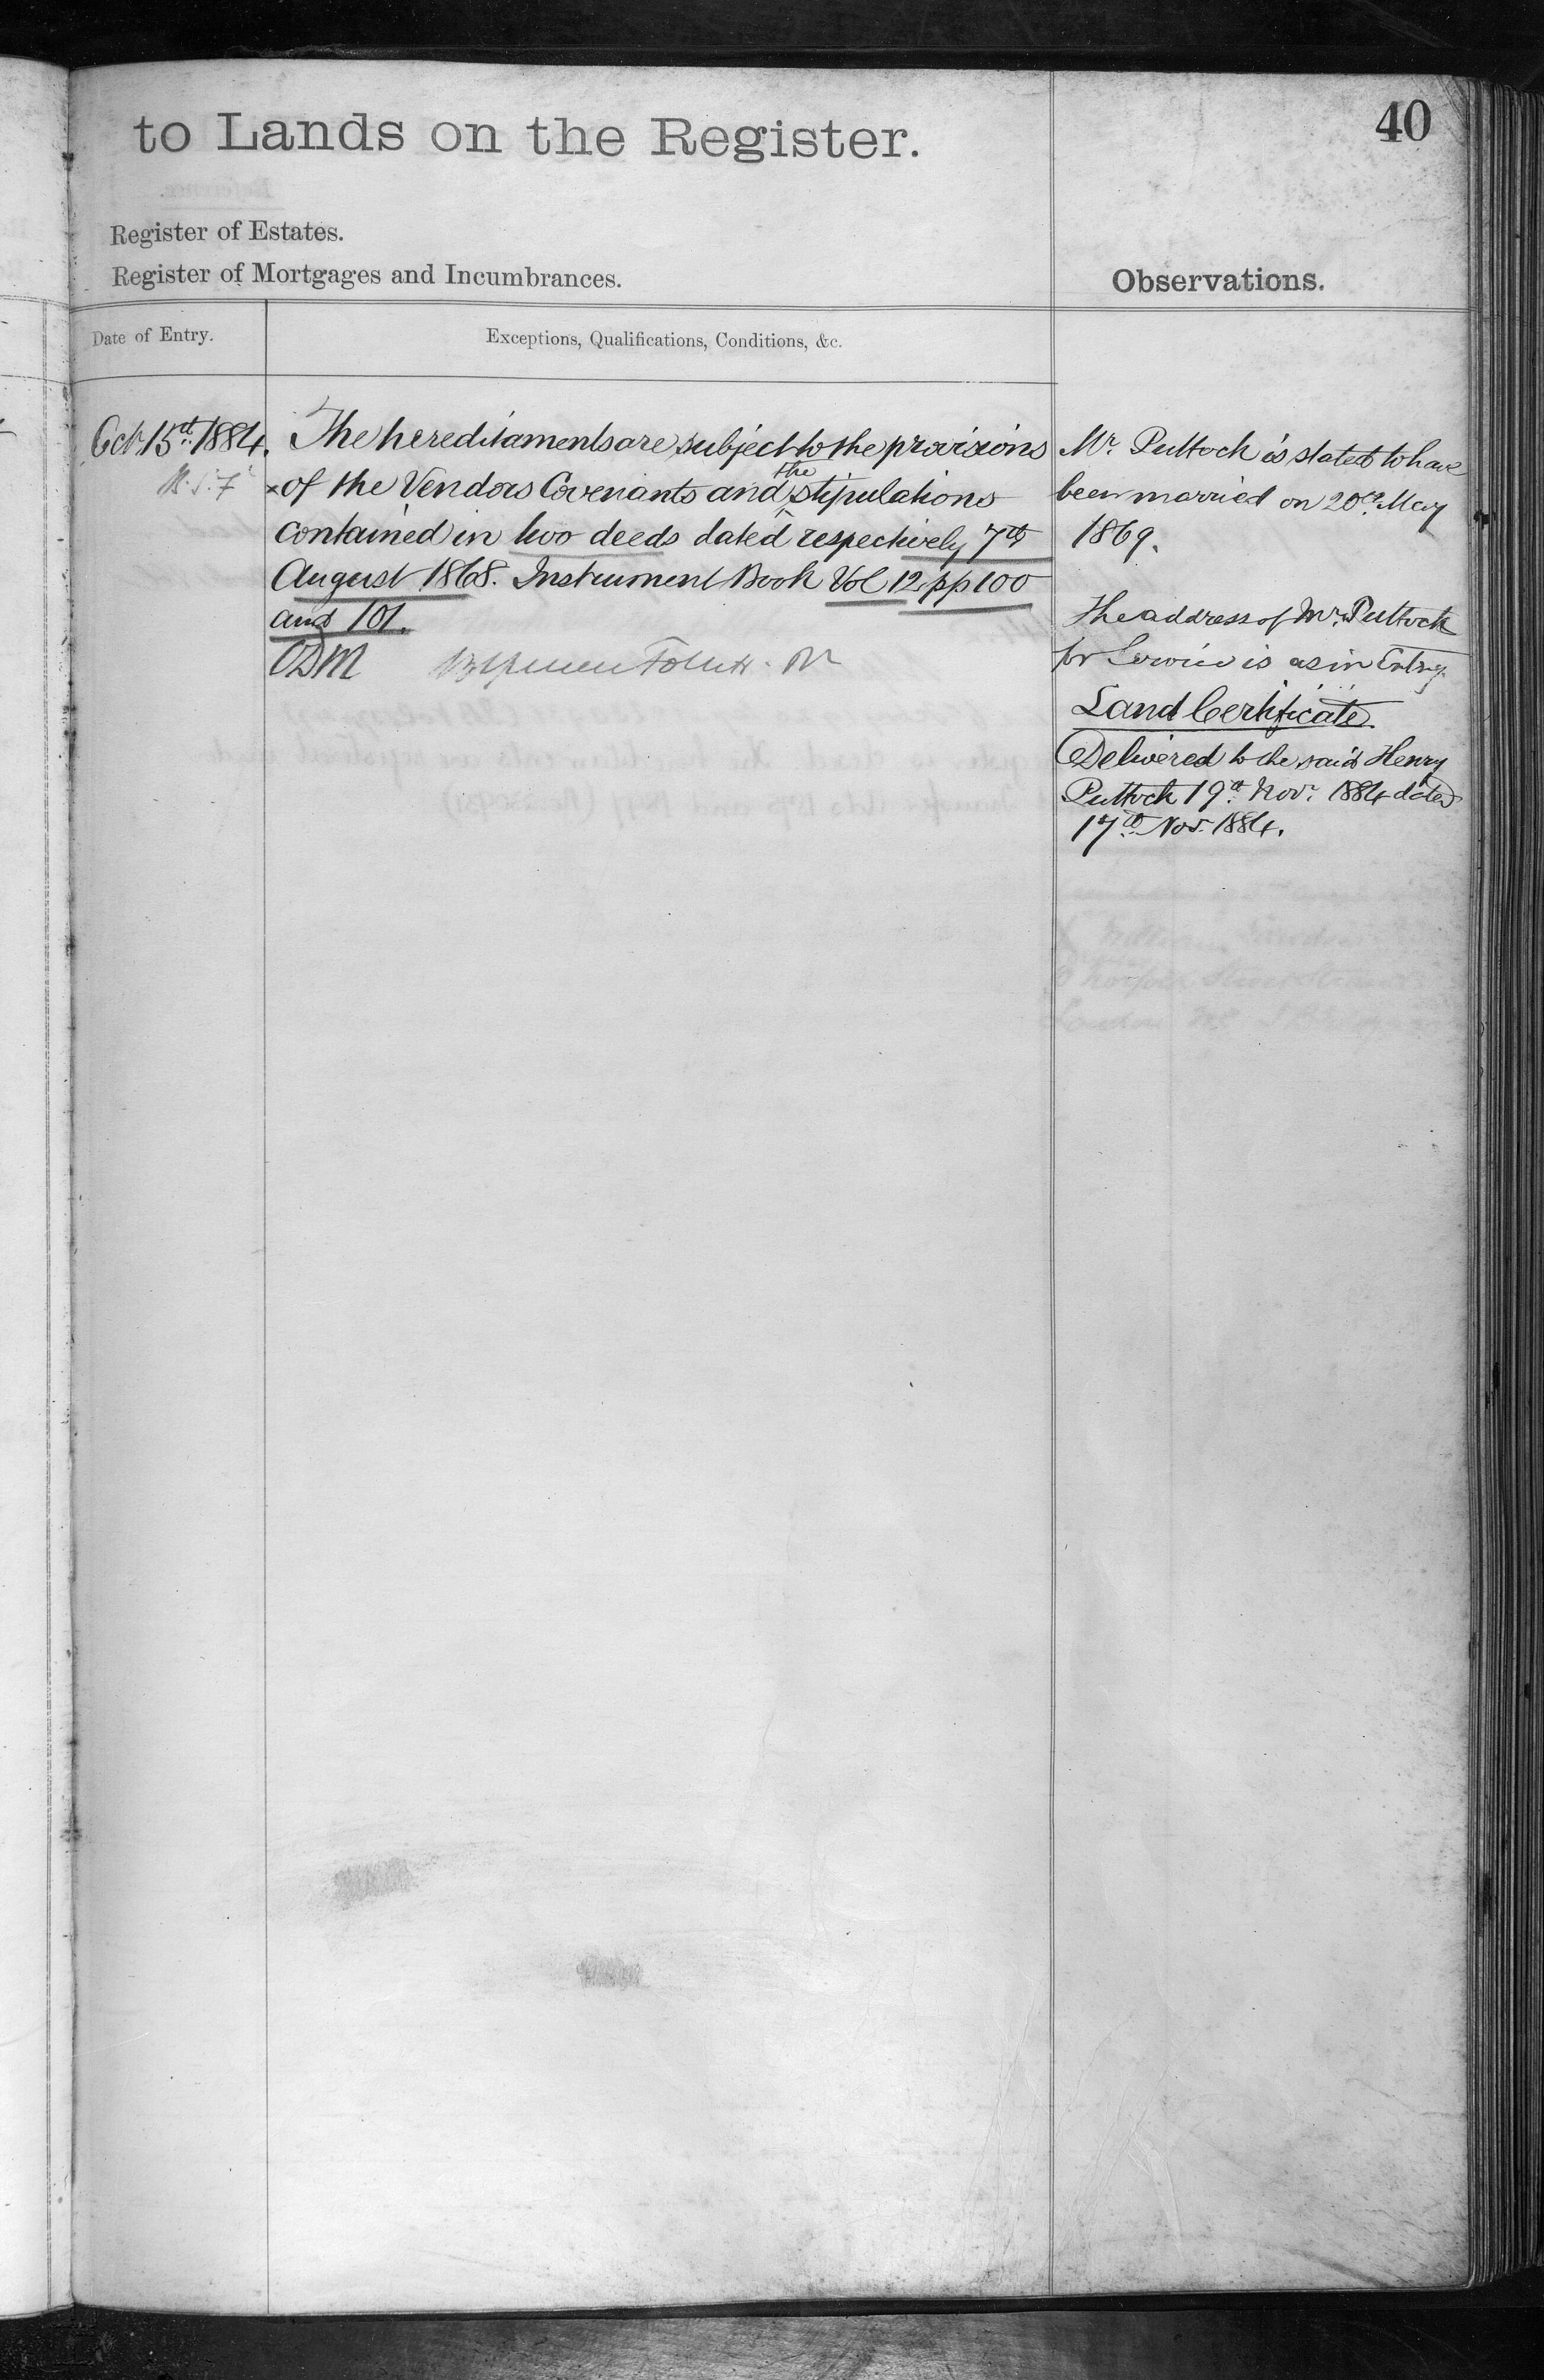 to Lands on the Register.
40
Register of Estates.
Register of Mortgages and Incumbrances.
Observations.
Date of Entry.
Exceptions, Qualifications, Conditions, &c.
Oct 15th 1884.
The hereditaments are subject to the provisions
of the Vendors Covenants and the stipulations
contained in two deeds dated respectively 7th
August 1868. Instrument Book Vol 12 pp 100
and 101.
Mr. Puttock is stated to have
been married on 20th May
1869.
The address of Mr. Puttock
for Service is as in Entry
Land Certificate.
Delivered to the said Henry
Puttock 19th Nov. 1884 dated
17th Nov. 1884.